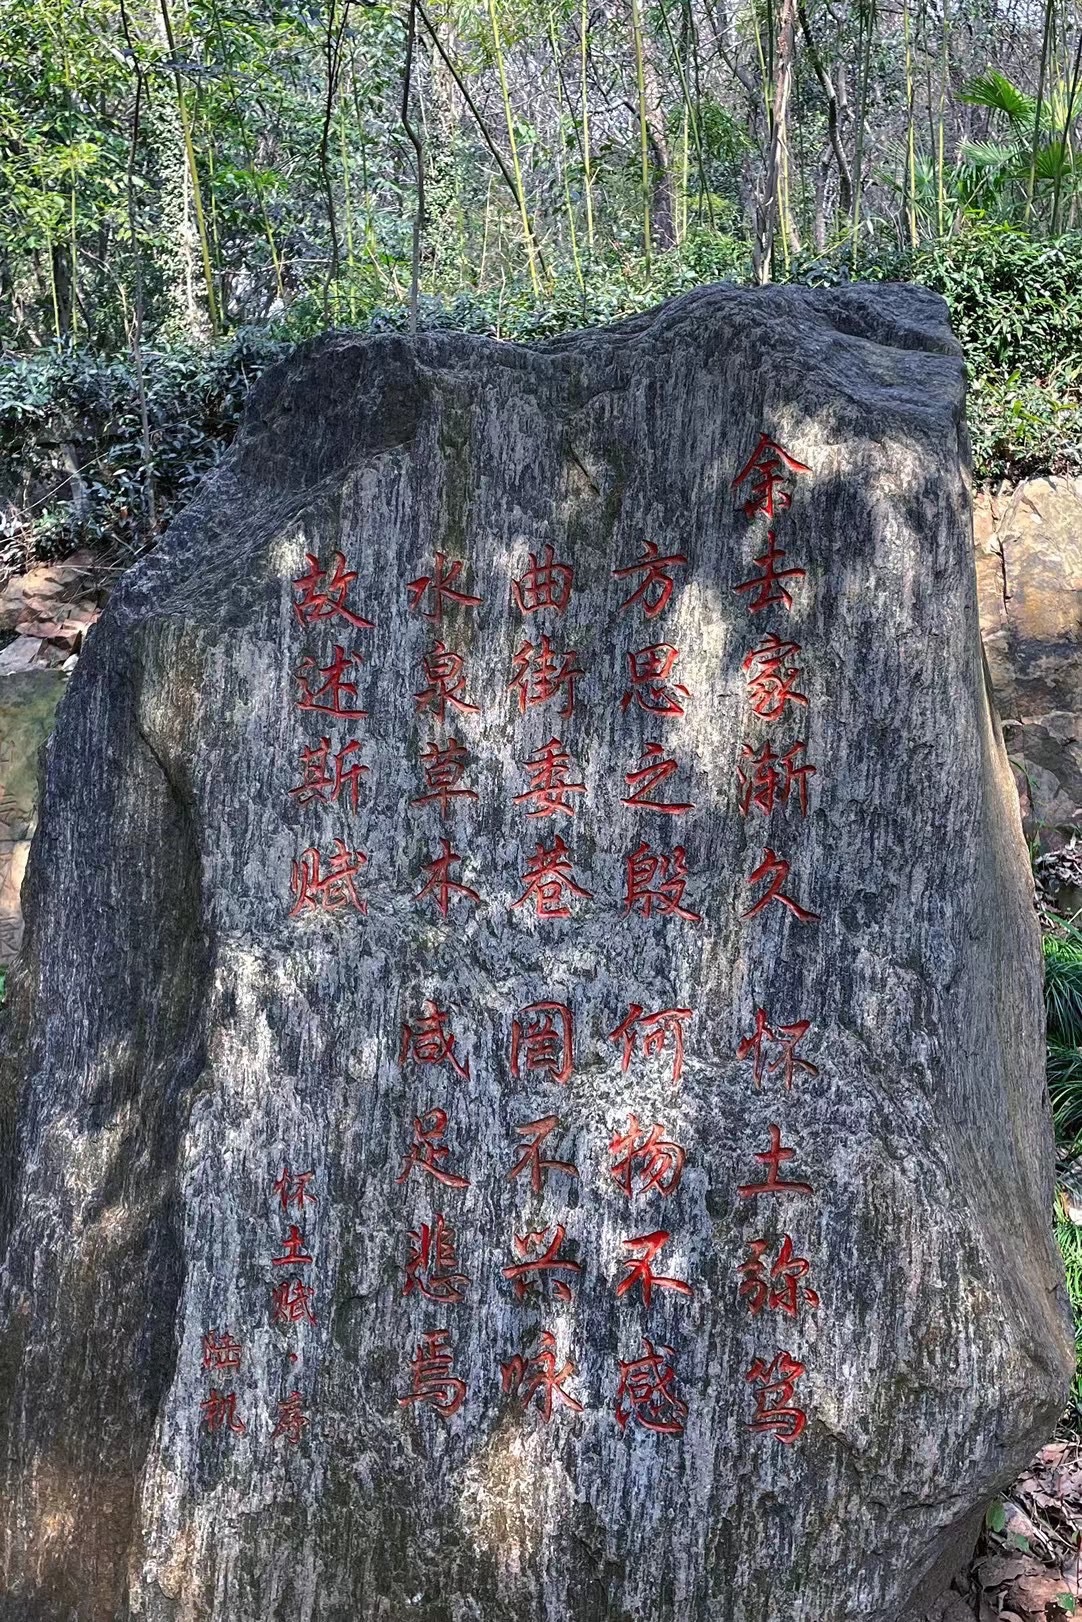 余去家渐久 怀土弥笃
方思之殷 何物不感
曲街委巷 罔不兴咏
水泉草木 咸足悲焉
故述斯赋
怀土赋·序
陆机